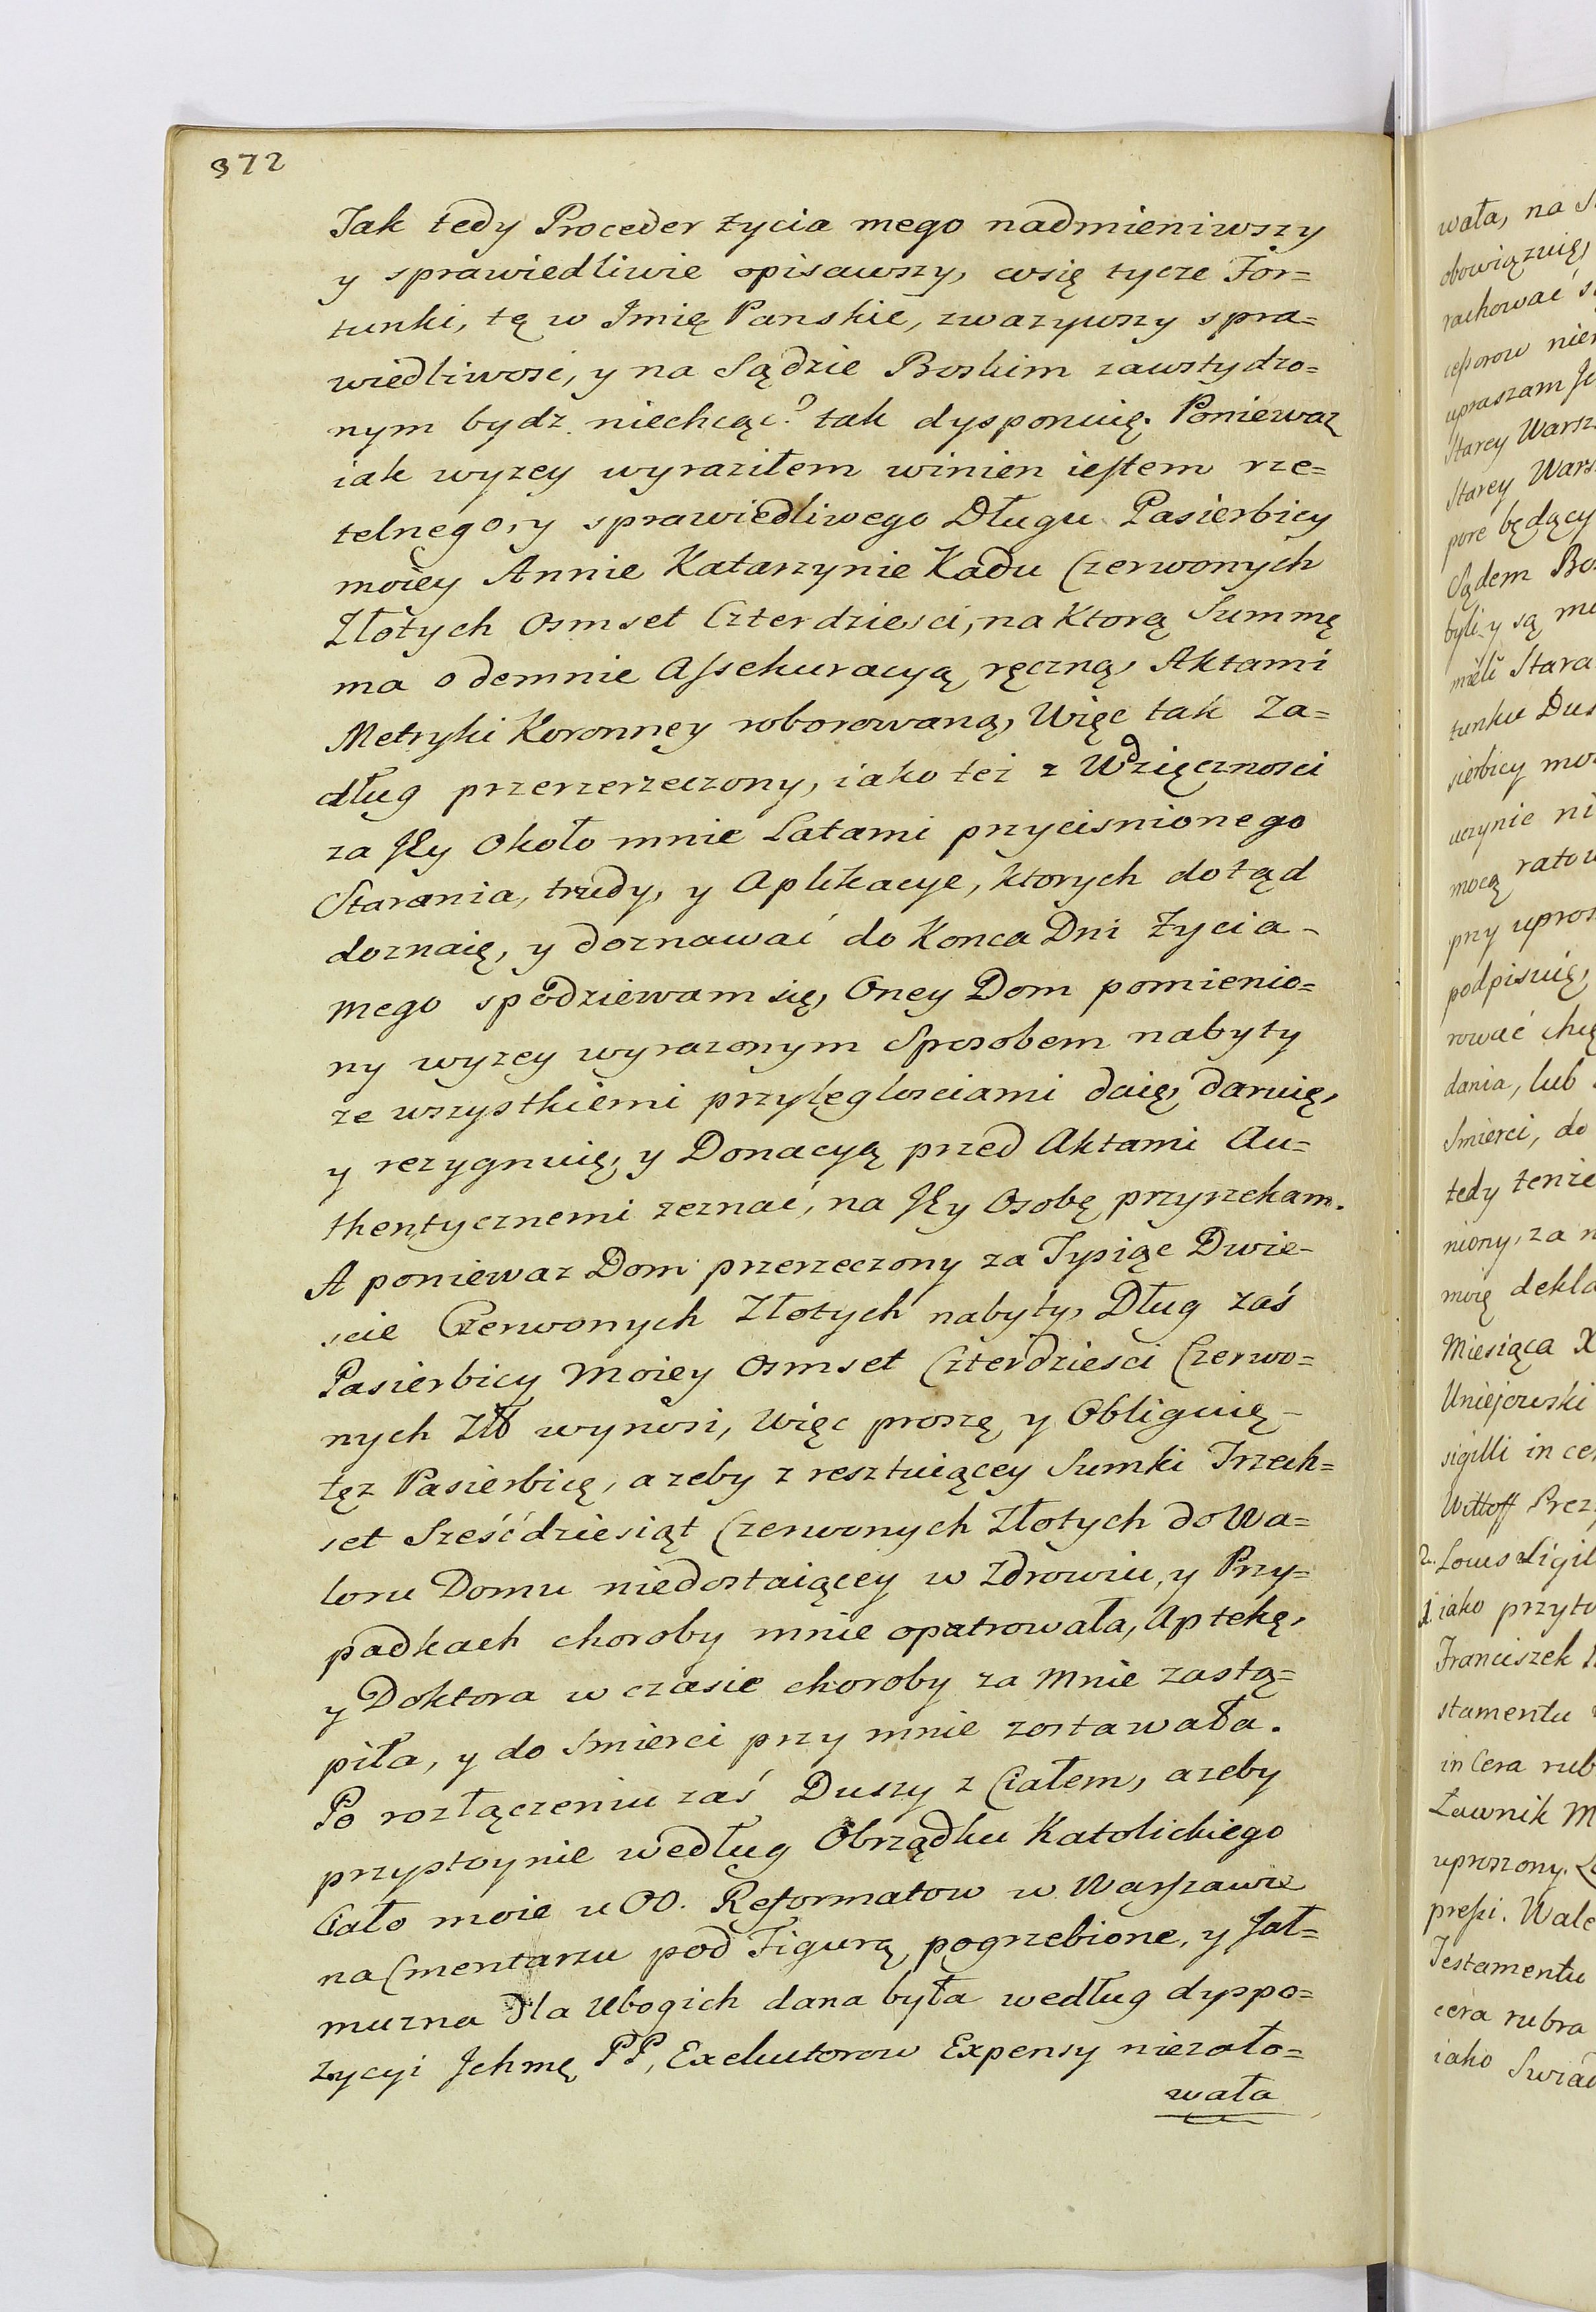 372
Jak tedy Proceder życia mego nadmieniwszy
y sprawiedliwie opisawszy, co się tycze For=
tunki, tę w Jmię Panskie, zwazywszy spra=
wiedliwosc, y na Sądzie Boskim zawstydzo=
nym bydz niechcąc? tak dysponuię. Poniewaz
iak wyzey wyraziłem winien iestem rze=
telnego, y sprawiedliwego Długu Pasierbicy
moiey Annie Katarzynie Kadu Czerwonych
Złotych Osmset Czterdziesci, na Ktorą Summę
ma odemnie Assekuracyą ręczną, Aktami
Metryki Koronney roborowaną, Więc tak Za=
dług przerzerzeczony, iako tez z Wdzięcznosci
za Jey Około mnie Latami przycisnionego
Starania, trudy, y Aplikacye, ktorych dotąd
doznaię, y doznawać do Konca Dni Zycia-
mego spodziewam się, Oney Dom pomienio=
ny wyzey wyrazonym Sposobem nabyty
ze wszystkiemi przyległosciami daię, daruię,
y rezygnuię, y Donacyą przed Aktami Au=
thentycznemi zeznać, na Jey Osobę przyrzekam.
A poniewaz Dom przerzeczony za Tysiąc Dwie-
scie Czerwonych Złotych nabyty, Dług zaś
Pasierbicy Moiey Osmset Czterdziesci Czerwo=
nych Zł wynosi, Więc proszę y Obliguię-
tęz Pasierbicę, azeby z resztuiącey Sumki Trzech=
set Sześćdziesiąt Czerwonych Złotych do Wa=
loru Domu niedostaiącey w Zdrowiu, y Przy=
padkach choroby mnie opatrowała, Aptekę,
y Doktora w czasie choroby za Mnie zastą=
piła, y do Smierci przy mnie zostawała.
Po rozłączeniu zaś Duszy z Ciałem, azeby
przystoynie według Obrządku Katolickiego
Ciało moie u OO. Reformatow w Warszawie
na Cmentarzu pod Figurą pogrzebione, y Jał=
muzna Dla Ubogich dana była według dyspo=
zycyi Jchmę PP, Exekutorow Expensy niezało=
wała
wała, na
obowiązuię,
rachować
cessorow
upraszam
Starey
Starey
pore będący
Sądem
były y są
mieli Stara
tunku
sierbicy
uczynic
mocą
przy
podpisuię,
rować
dania, lub
Smierci, do
tedy tenze
niony, za
moię dekla
Miesiąca X
Uniejowski
sigilli in
Wittoff
Locus Sigil
iako przyto
Franciszek
stamentu
in Cera rub
Ławnik M
uproszony.
pressi. Wale
Testamentu
cera rubra
iako Swiad